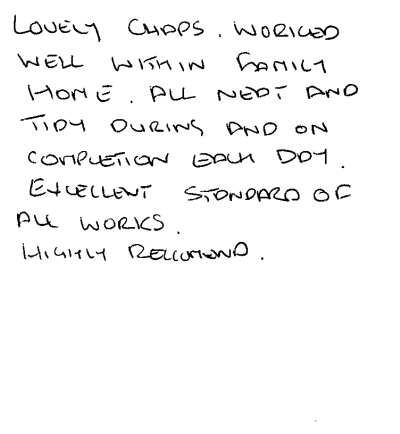 LOVELY CHAPS. WORKED
WELL WITHIN FAMILY
HOME. ALL NEAT AND
TIDY DURING AND ON
COMPLETION EACH DAY.
EXCELLENT STANDARD OF
ALL WORKS.
HIGHLY RECCOMEND.